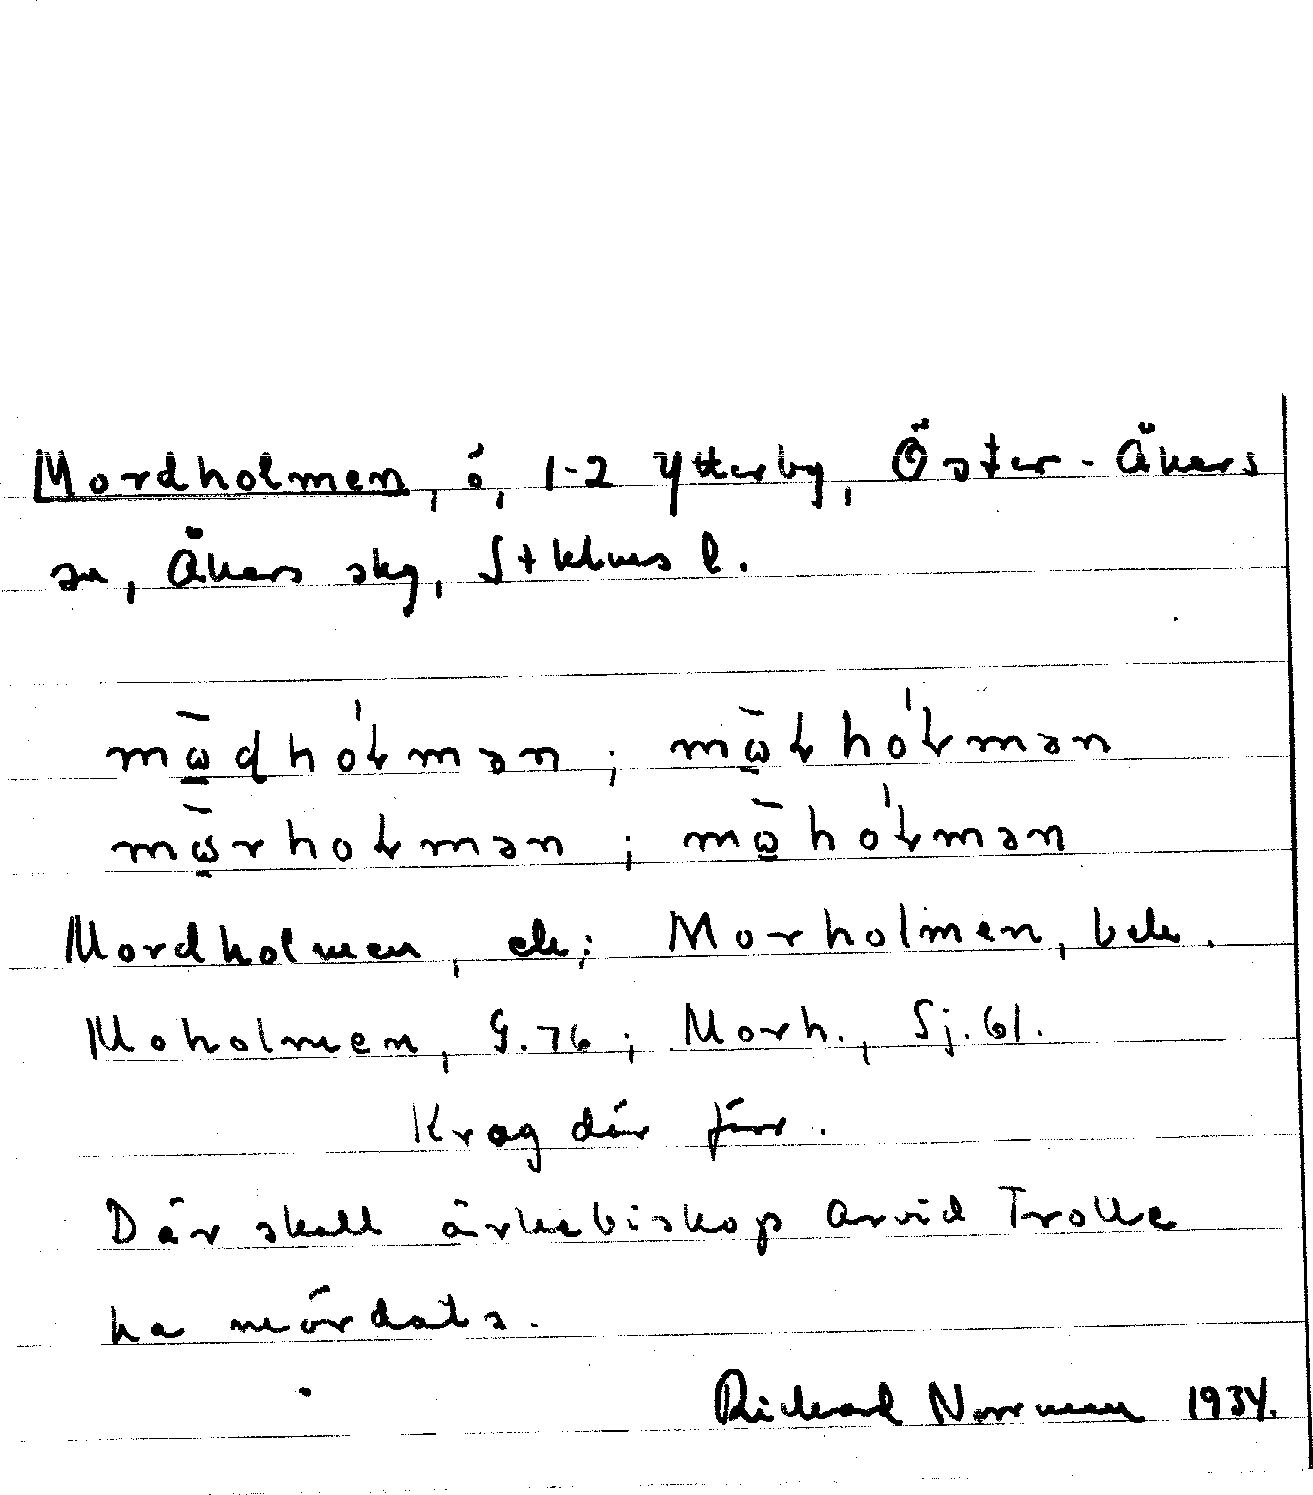 Mordholmen, ö, 1-2 Ytterby, Öster-Åkers
sn, Åkers skg, Sthlms l.
mω̄dhólmən ; mω̄ɫhólmən
mω̄rholmən ; mω̄hólmən
Mordholmen, ek; Morholmen, bek.
Moholmen, G.76 ; Morh., Sj.61.
Krog där förr.
Där skall ärkebiskop Arvid Trolle
ha mördats.
Rickard Norrman 1934.